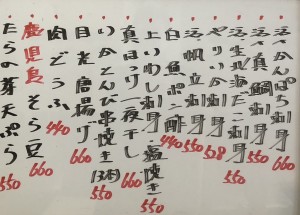 かんぱち刺身 660
真鯛刺身 550
刺身 550
活帆立刺身
白魚ポン酢 440
上いわし刺身 塩焼き 550
真ほっけ一夜干し 660
いかとんび串焼き(3本) 550
目光唐揚げ 660
肉どうふ 440
鹿児島そら豆 660
たらの芽天ぷら 550